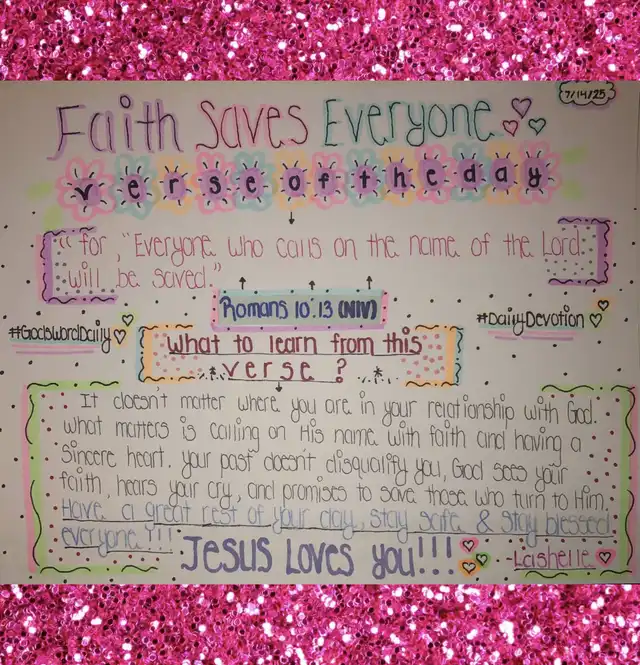 7/14/25
Faith Saves Everyone
verse of the day
"for, "Everyone who calls on the name of the Lord
will be saved."
Romans 10:13 (NIV)
#GodsWordDaily
#DailyDevotion
What to learn from this
verse?
It doesn't matter where you are in your relationship with God.
what matters is calling on His name with faith and having a
sincere heart, your past doesn't disqualify you, God sees your
faith, hears your cry, and promises to save those who turn to Him.
Have a great rest of your day, stay safe & stay blessed
everyone!!!
Jesus Loves you!!!
-Lashelle